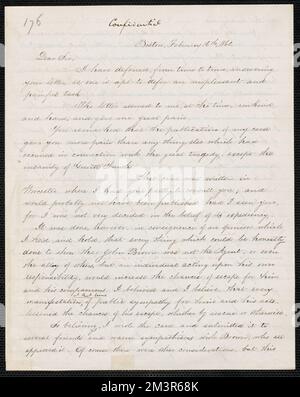 176
Confidential
Boston, February 16th, 1860.
Dear Sir,
I have deferred, from time to time, answering
your letter as one is apt to defer an unpleasant and
painful task.
The letter seemed to me, at the time, unkind
and hard, and gave me great pain.
You remarked that the publication of my card
gave you more pain than any thing else which had
occurred in connection with the great tragedy, except the
insanity of Gerritt Smith.
The card was written in
Worcester where I had gone partly to consult you, and
would probably not have been published had I seen you,
for I was not very decided in the belief of its expediency.
It was done, however, in consequence of an opinion which
I held and hold, that every thing which could be honestly
done to show that John Brown was not the Agent, or even
the ally of others, but an individual acting upon his own
responsibility, would increase the chances of escape for him
and his companions. I believed and I believe that every
manifestation, at that time, of public sympathy for him and his acts,
lessened the chances of his escape, whether by rescue or otherwise.
So believing I wrote the card and submitted it to
several friends and warm sympathisers with Brown, who all
approved it. Of course there were other considerations, but this
alamy
Image ID: 2M3R68K
www.alamy.com